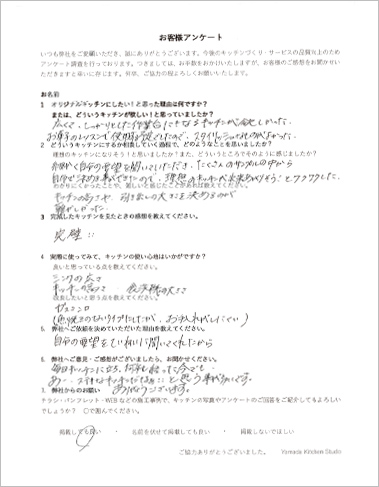 お客様アンケート
いつも弊社をご愛顧いただき、誠にありがとうございます。今後のキッチンづくり・サービスの品質向上のため
アンケート調査を行っております。つきましては、お手数をおかけいたしますが、お客様のご感想をお聞かせい
ただきますと幸いに存じます。何卒、ご協力の程よろしくお願いいたします。
お名前
1 オリジナルキッチンにしたい！と思った理由は何ですか？
または、どういうキッチンが欲しい！と思っていましたか？
広くて、しっかりとした作業台にもなるキッチンが欲しかった。
お菓子のレッスンで使用予定としたので、スタイリッシュなものがよかった。
2 どういうキッチンにするか相談していく過程で、どのようなことを思いましたか？
理想のキッチンになりそう！と思いましたか？また、どういうところでそのように感じましたか？
自分の要望を聞いていただき、たくさんの
理想のキッチンが出来あがりそう！とワクワクした。
わかりにくかったことや、難しいと感じたことがあれば教えてください。
キッチンの高さや、引き出しの大きさを決めるのが
難しかった。
3 完成したキッチンを見たときの感想を教えてください。
完璧！！
4 実際に使ってみて、キッチンの使い心地はいかがですか？
良いと思っている点を教えてください。
シンクの広さ
キッチンの高さ 食洗機の大きさ
改良したいと思う点を教えてください。
ガスコンロ
お手入れがしにくい）
5 弊社へご依頼を決めていただいた理由を教えてください。
自分の要望をていねいに聞いてくれたから
6. 弊社へご意見・ご感想がございましたら、お聞かせください。
毎日キッチンに立ち、
あ〜、ステキなキッチンだなぁ と思う
ありがとうございます。
弊社からのお願い
チラシ・パンフレット・WEBなどの施工事例で、キッチンの写真やアンケートのご回答をご紹介してもよろしい
でしょうか？ ○で囲んでください。
掲載しても良い ・ 名前を伏せて掲載しても良い ・ 掲載しないでほしい
ご協力ありがとうございました。 Yamada Kitchen Studio